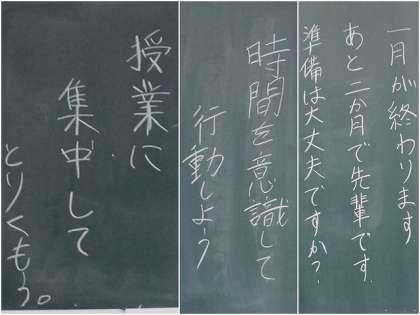 一月が終わります
あと二か月で先輩です。
準備は大丈夫ですか?
時間を意識して
行動しよう
授業に
集中して
とりくもう。